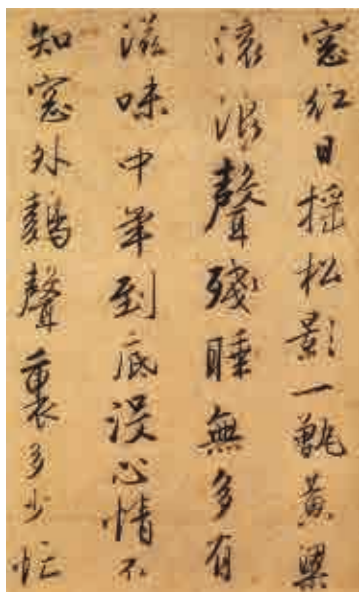 窓紅日摇松影一甌黄粱
滚滚聲殘睡無多有
滋味中年到底没心情不
知窓外鷄聲裏多少忙